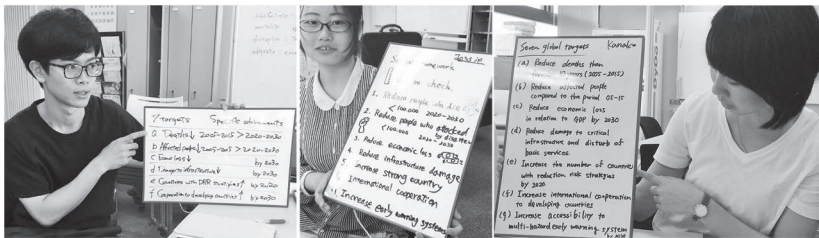 7 targets Specific achievements
a Deaths↓ 2005-2015 > 2020-2030
b Affected people↓ 2005-2015 > 2020-2030
c Econo loss↓ by 2030
d Damage to infrastructure↓ by 2030
e Countries with DRR strategies↑ by 2020
f Cooperation to developing countries↑ by 2030
Jessie
framework
to check.
1. Reduce people who die
<100.000 2020-2030
2. Reduce people who attacked
by disaster
<100.000 2020-2030
3. Reduce economic loss
4. Reduce infrastructure damage
5. Increase strong country
6. International cooperation
7. Increase early warning systems
Seven global targets Kanako
(a) Reduce deaths than
years (2005-2015)
(b) Reduce affected people
compared to the period 05-15
(c) Reduce economic loss
in relation to GDP by 2030
(d) Reduce damage to critical
infrastructure and disturb of
basic services.
(e) Increase the number of countries
with reduction risk strategies
by 2020
(f) Increase international cooperation
to developing countries
(g) Increase accessibility to
multi-hazard early warning system
by 2030